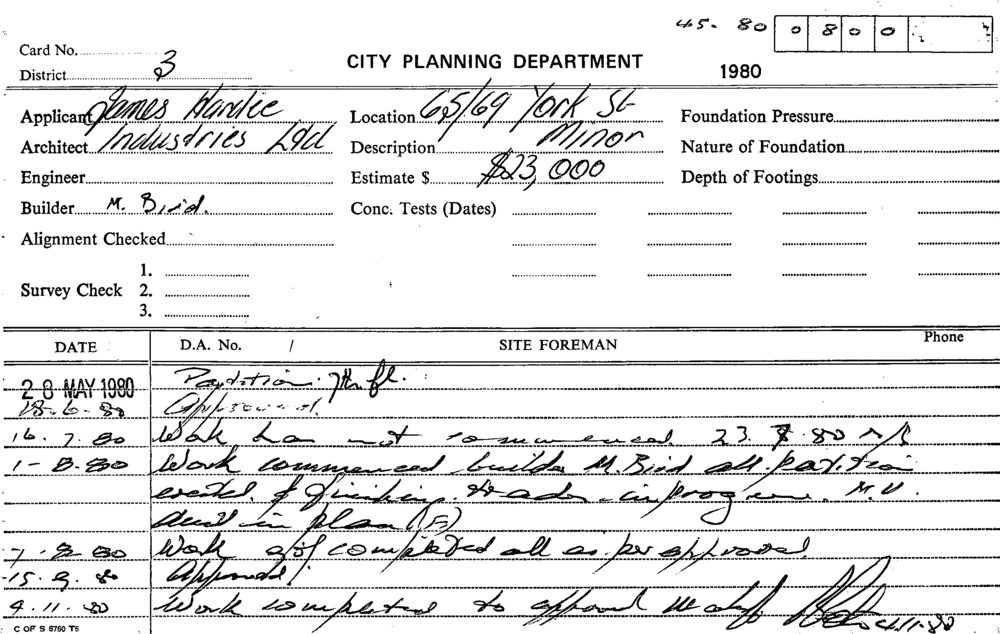 45. 80 0800
Card No.
District 3
CITY PLANNING DEPARTMENT
1980
Applicant James Hardie
Location 65/69 York St
Foundation Pressure
Architect Industries Ltd
Description Minor
Nature of Foundation
Engineer
Estimate $ $23,000
Depth of Footings
Builder M. Bird.
Conc. Tests (Dates)
Alignment Checked
1.
Survey Check 2.
3.
DATE D.A. No. / SITE FOREMAN Phone
28 MAY 1980 Partition. 7th fl.
18-6-80 Approved.
16.7.80 Work has not commenced 23. .80
1-8-80 Work commenced builder M. Bird all partition
erected & finishing trades in progress. M.V.
in plan (F)
7-8-80 Work completed all as per approval
15.9.80 Approved
4.11.80 Work completed to approved 4.11.80
C OF S 6750 T5